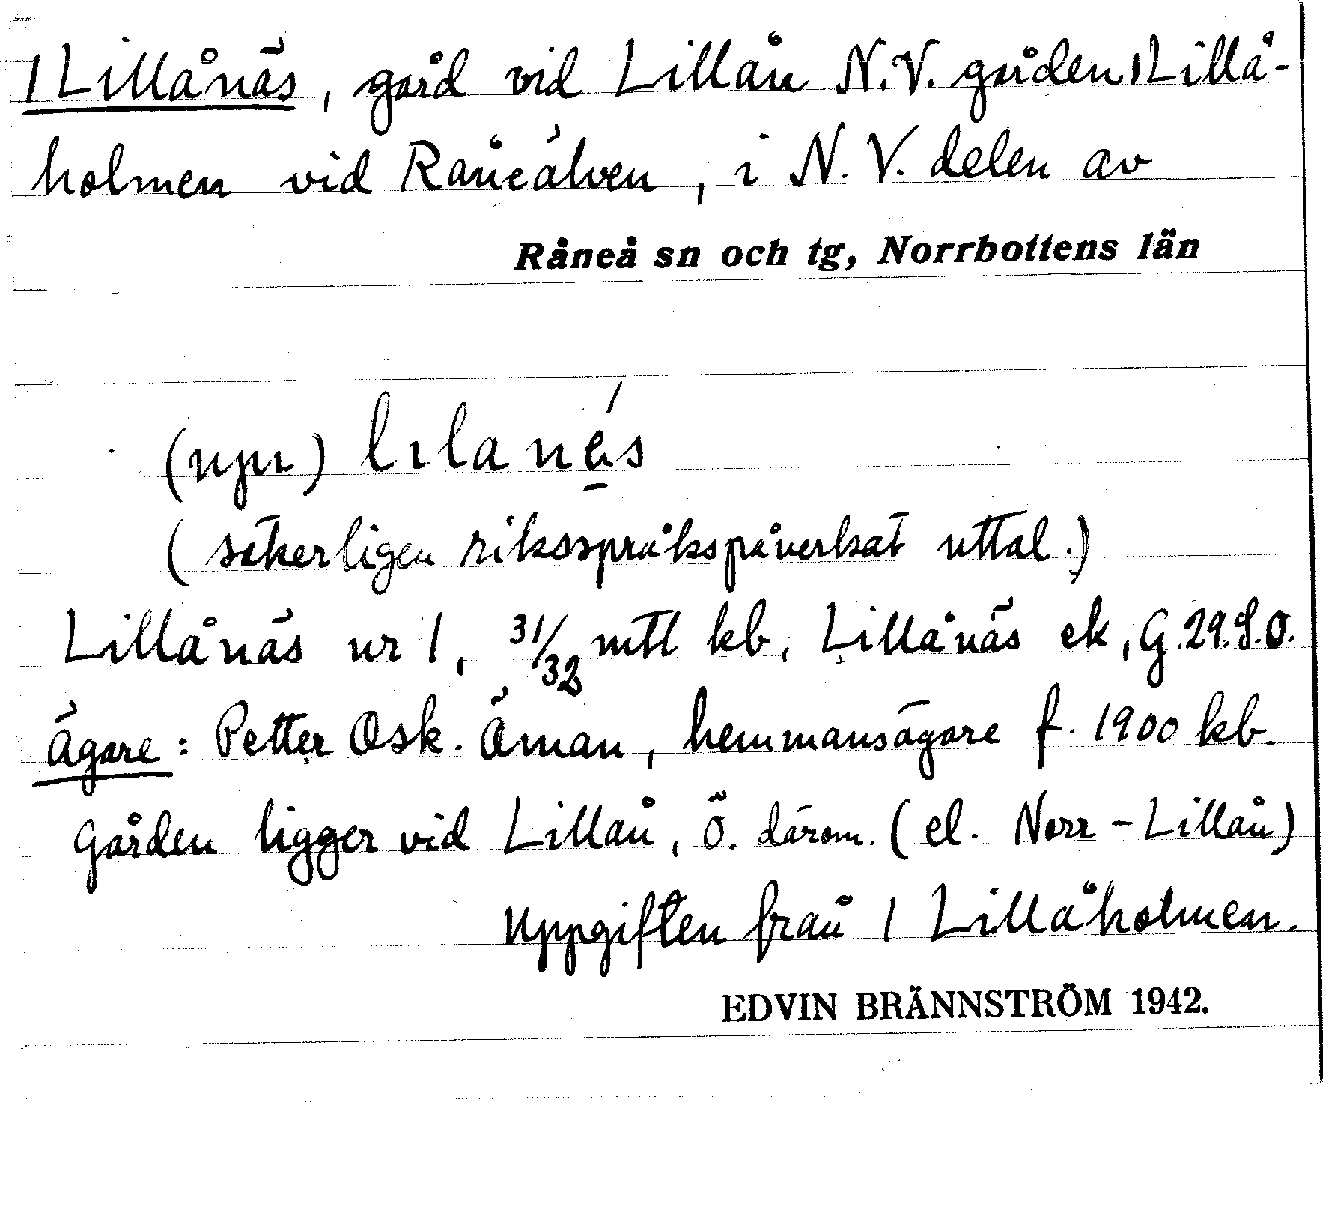 1 Lillånäs, gård vid Lillån N.V. gården 1 Lillå-
holmen vid Råneälven, i N.V. delen av
Råneå sn och tg, Norrbottens län
(npr) lılanés
(säkerligen riksspråkspåverkat uttal.)
Lillånäs nr 1, 31/32 mtl kb, Lillånäs ek, G.29.S.O.
Ägare: Petter Osk. Öman, hemmansägare f. 1900 kb.
Gården ligger vid Lillån, Ö. därom. (el. Norr-Lillån)
Uppgiften från 1 Lillåholmen.
EDVIN BRÄNNSTRÖM 1942.